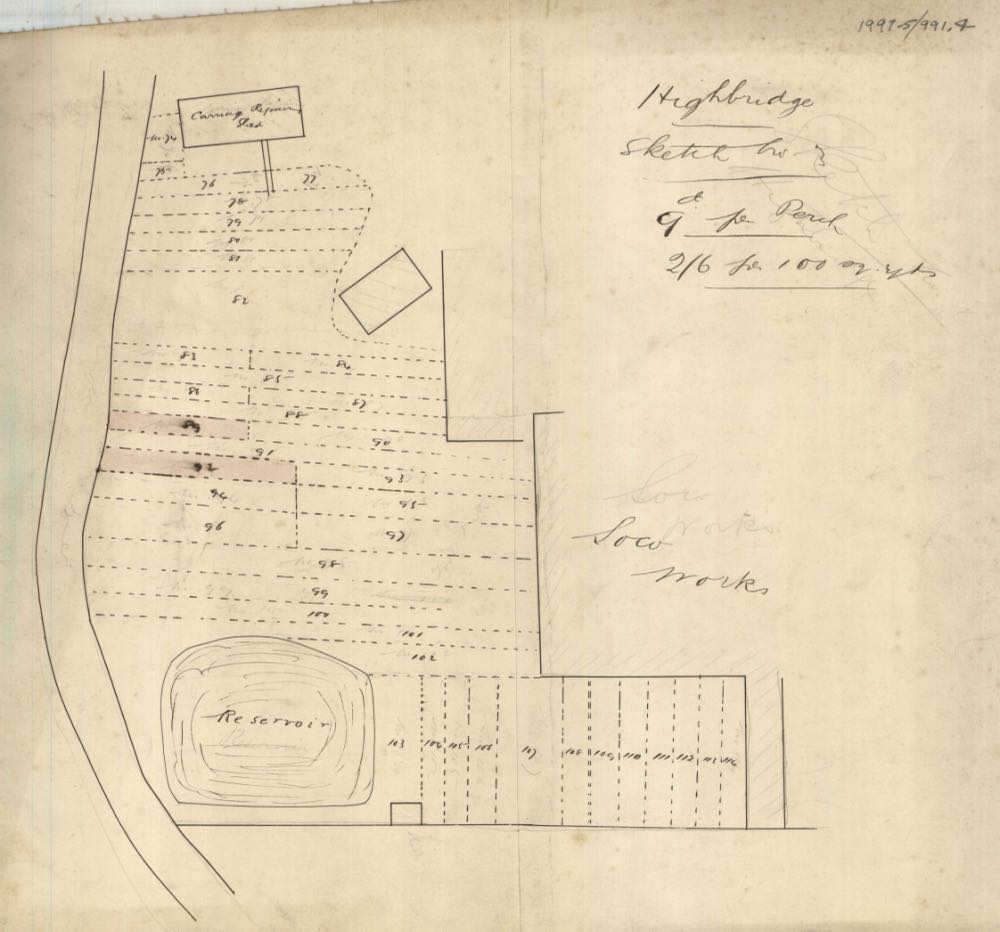 1997-5/991.4
Highbridge
Sketch No. 3
9d per Perch
2/6 per 100 sq. yds
Carriag Repairing
Shed
No. 74
75
76
77
78
79
80
81
82
83
84
85
86
87
88
89
90
91
92
93
94
95
96
97
98
99
100
101
102
Loco
Works
Loco
Works
Reservoir
103
104
105
106
107
108
109
110
111
112
113
114